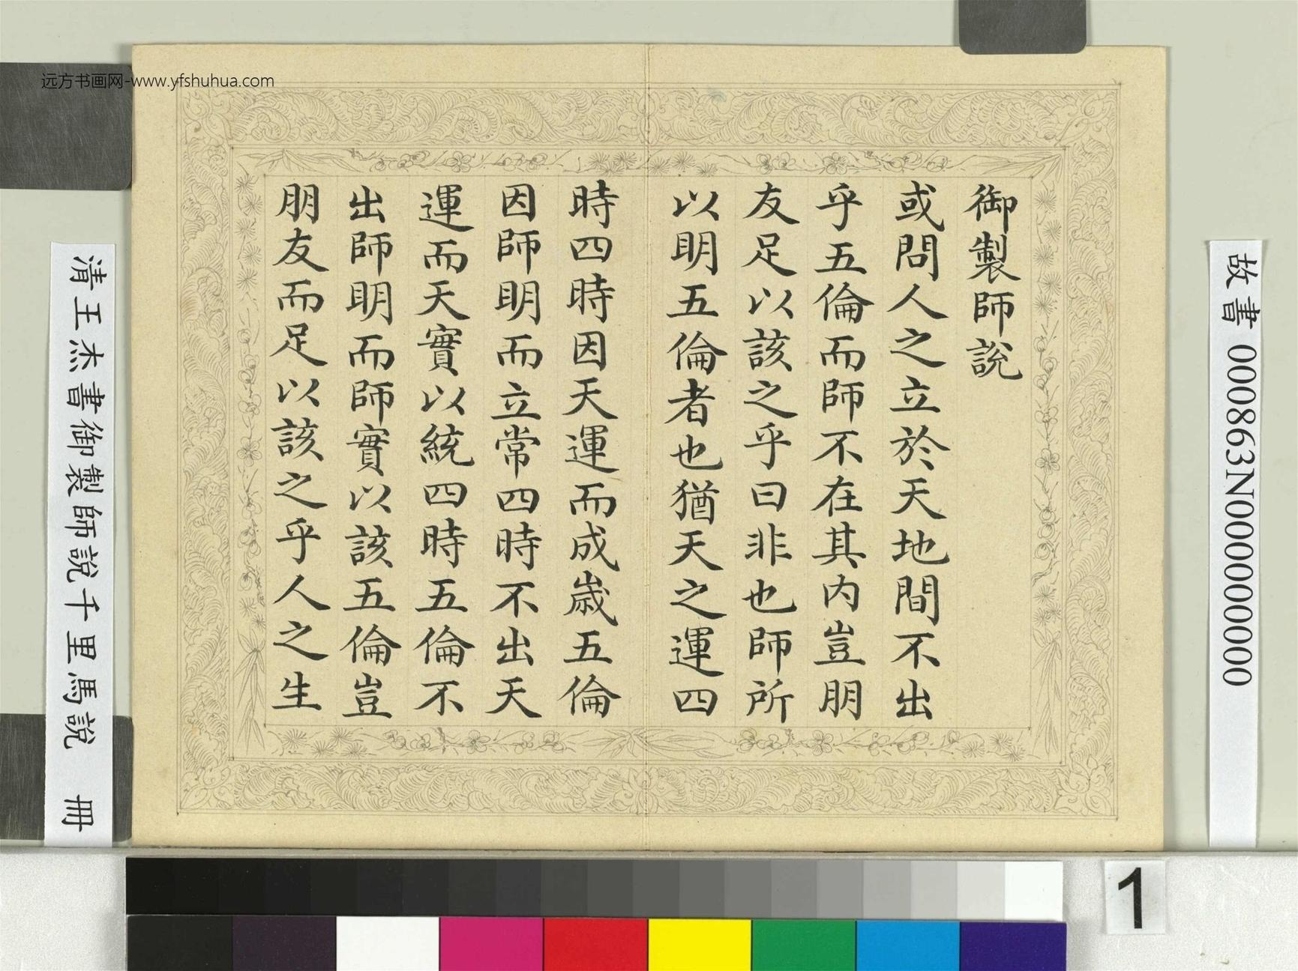 远方书画网-www.yfshuhua.com
故書 000863N000000000
御製師說
或問人之立於天地間不出
乎五倫而師不在其内豈朋
友足以該之乎曰非也師所
以明五倫者也猶天之運四
時四時因天運而成歲五倫
因師明而立常四時不出天
運而天實以統四時五倫不
出師明而師實以該五倫豈
朋友而足以該之乎人之生
清王杰書御製師說千里馬說 冊
1